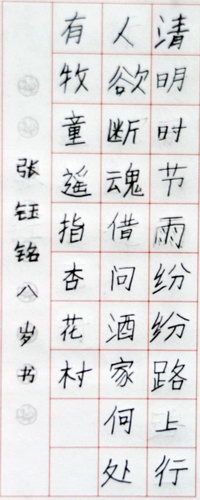 清明时节雨纷纷路上行
人欲断魂借问酒家何处
有牧童遥指杏花村
张钰铭八岁书